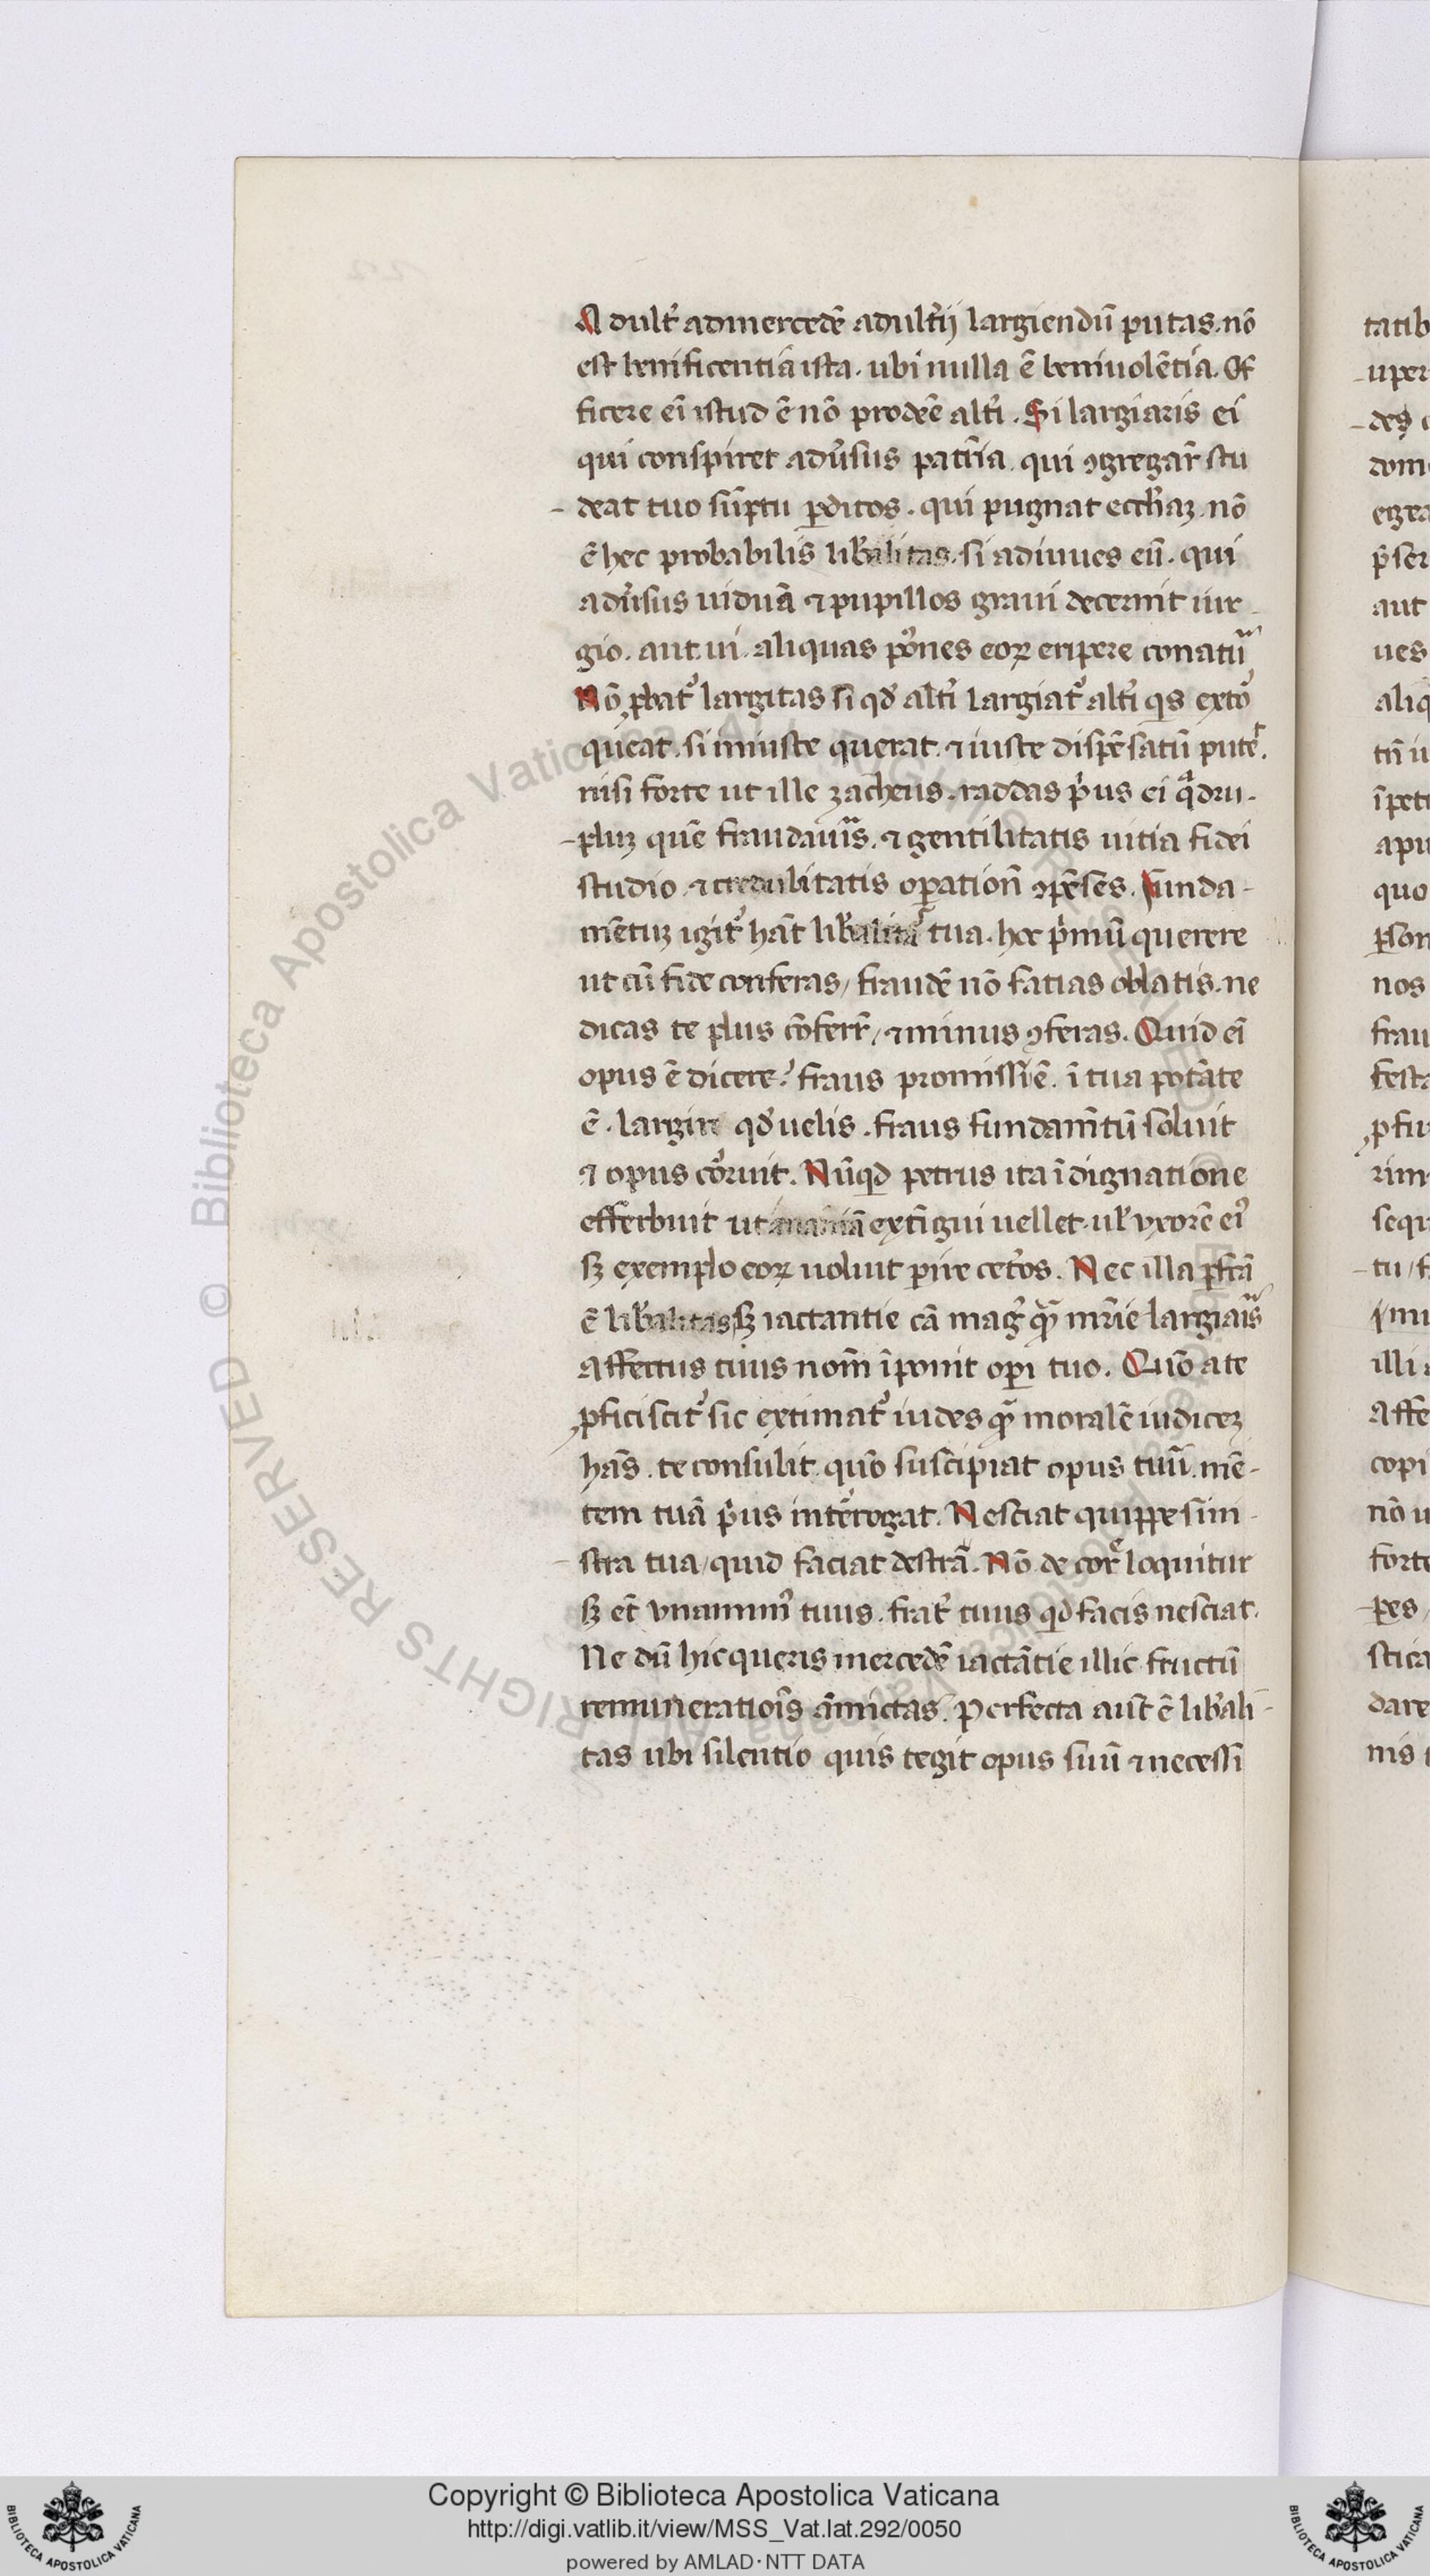 Adult᷑ admercedē adult᷑ij largiendū putas. nō
est benificentia ista. ubi nulla ē beniuolētia. Of
ficere eī istud ē nō prodeē alt᷑i. Si largiaris ei
qui conspiret adu᷑sus patr̄ia. qui ꝯgregar̄ stu
deat tuo sūptu ꝑditos. qui pugnat ecch̄aꝫ. nō
ē hec probabilis lib᷑alitas. si adiuues eū. qui
adu᷑sus uiduā ⁊ pupillos graui decernit iur
gio. aut ui. aliquas poẜones eoꝝ eripere conatu᷑
Nō ꝓbat᷑ largitas si qđ alt᷑i largiat᷑ alt᷑i qs exto᷑
queat. si iniuste querat. ⁊ iuste dispēsatū putet᷑.
nisi forte ut ille zacheus. raddas p᷑us ei q᷑dru
pluꝫ quē fraudau᷑is. ⁊ gentilitatis uitia fidei
studio ⁊ credulitatis oꝑationē ꝯpēses. Funda
mētuꝫ igit᷑ hāt lib᷑alita᷑ tua. hoc p᷑mū querere
ut cū fide conferas, fraudē nō fatias oblatis. ne
dicas te plus cōferr̄, ⁊ minus ꝯferas. Quid eī
opus ē dicere? fraus promissi ē. ī tua potāte
ē. largiri qđ uelis. fraus fundam̄tū soluit
⁊ opus co᷑ruit. Nūqd petrus ita īdignatione
efferbuit ut ananiā extīgui uellet. ul᷑ vxorē ei᷒
sꝫ exemplo eoꝝ uoluit ꝑire cet᷑os. Nec illa ꝑfc̄ā
ē lib᷑alitas sꝫ iactantie cā mag᷒ q̄ꝫ mr̄ie largia᷑is
Affectus tuus nom̄ īponit oꝑi tuo. Quō a te
ꝓficiscit᷑ sic extimat᷑ iudes q̄ꝫ moralē iudiceꝫ
hās. te consulit. quō suscipiat opus tuū. mē
tem tuā p᷑us int᷑erogat. Nesciat quippe sini
stra tua, quid faciat destrā. Nō de cor᷑e loquitur
sꝫ et̄ vnanim᷒ tuus. frat᷑ tuus qđ facis nesciat.
Ne dū hic queris mercedē iactātie illic fructū
remuneratioīs āmictas. Perfecta aut̄ ē lib᷑ali
tas ubi silentio quis tegit opus suū ⁊ necessi
tatib
uper
des
dom
egra
p᷑ser
aut
ues
aliq
tn̄ u
īpeti
apu
quo
ꝑson
nos
frau
festa
ꝓfu
rim
sequ
tu, f
simi
illi
Affe
copi
nō u
forte
pes
stica
dare
nis
© Biblioteca Apostolica Vaticana - ALL RIGHTS RESERVED
Copyright © Biblioteca Apostolica Vaticana
http://digi.vatlib.it/view/MSS_Vat.lat.292/0050
powered by AMLAD·NTT DATA
BIBLIOTECA APOSTOLICA VATICANA
BIBLIOTECA APOSTOLICA VATICANA